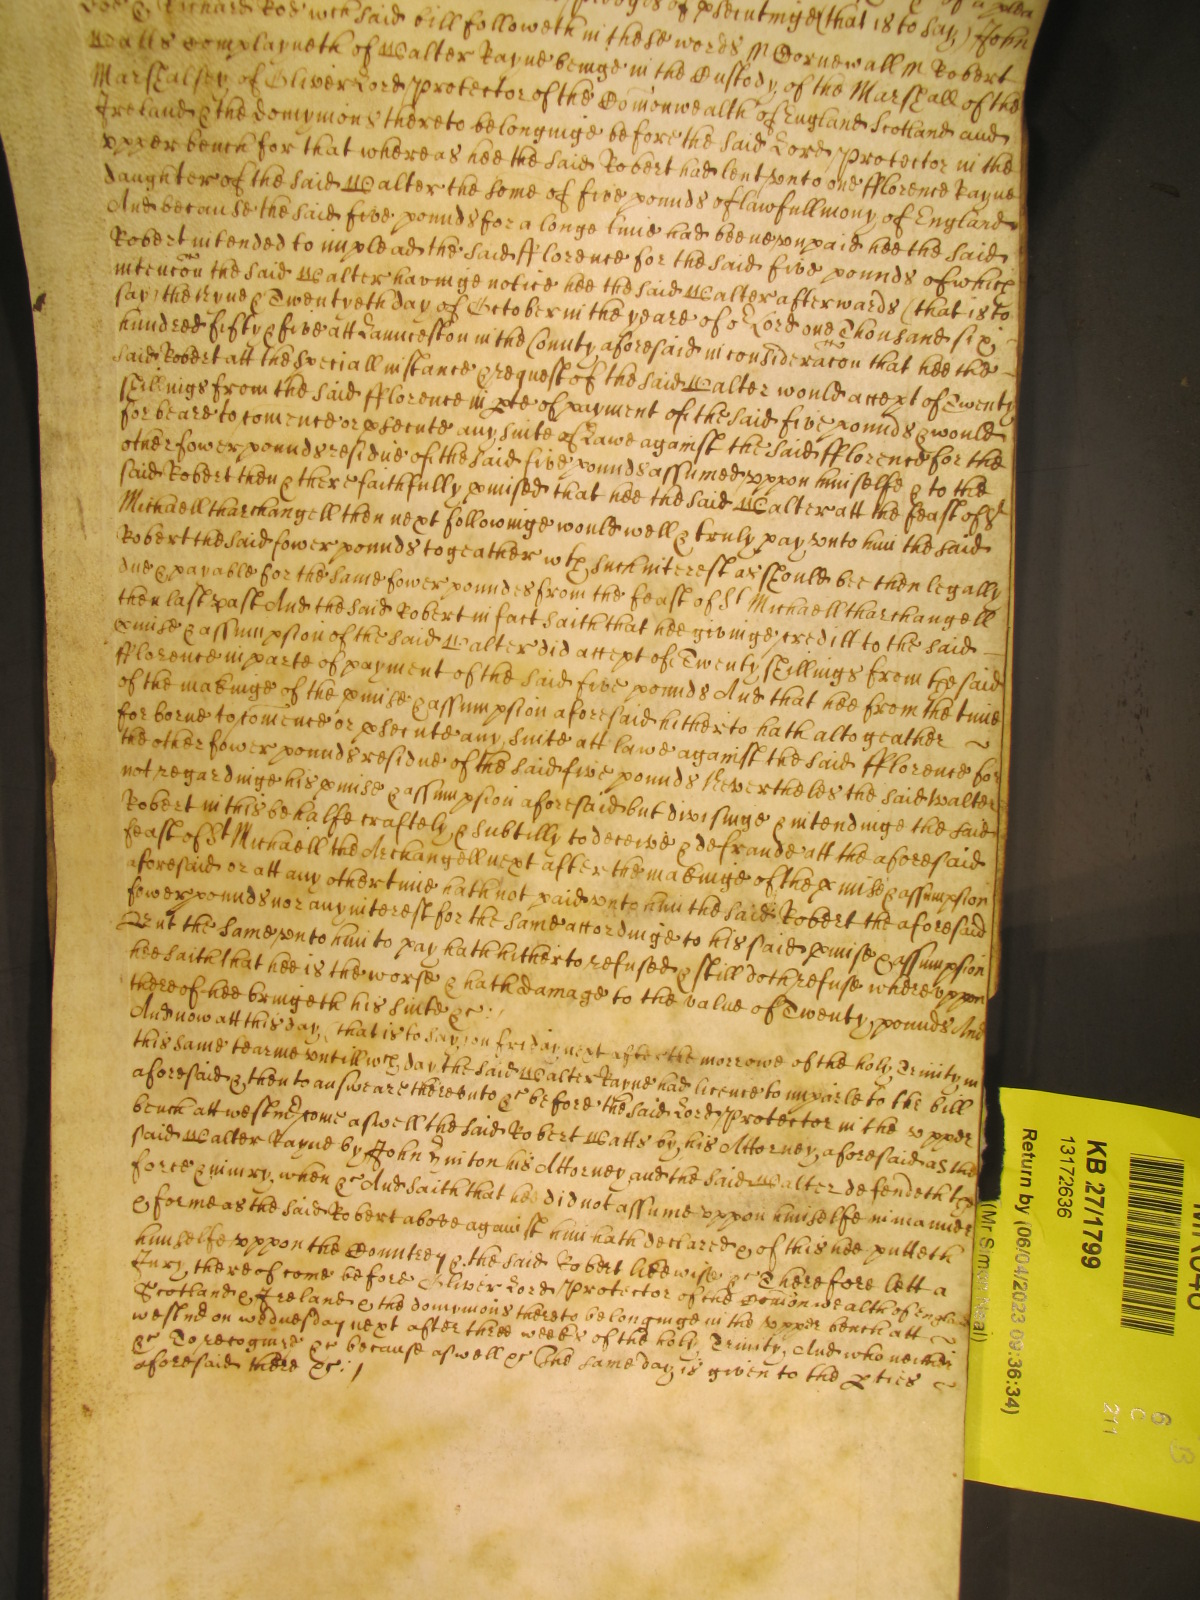 Richard Roe wch said bill followeth in these words ss Cornewall ss Robert
Watts Complayneth of Walter Rayne beinge in the Custody of the Marshall of the
Marshalsey of Oliver Lord Protector of the Comonwealth of England Scotland and
Ireland & the domynions thereto belonginge before the said Lord Protector in the
upper bench for that whereas hee the said Robert had lent unto one fflorence Rayne
daughter of the said Walter the some of five pounds of lawfull mony of England
And because the said five pounds for a longe time had beene unpaid hee the said
Robert intended to implead the said fflorence for the said five pounds of which
intencon the said Walter havinge notice hee the said Walter afterwards (that is to
say) the Nyne & Twentyeth day of October in the yeare of or Lord one Thousand six
hundred fifty & five att Launceston in the County aforesaid in consideracon that hee the
said Robert att the speciall instance & request of the said Walter would accept of Twenty
shillings from the said fflorence in pte of payment of the said five pounds & would
forbeare to comence or psecute any suite of Lawe against the said fflorence for the
other fower pounds residue of the said five pounds assumed uppon himselfe & to the
said Robert then & there faithfully pmised that hee the said Walter att the feast of St
Michaell tharchangell then next followinge would well & truly pay unto him the said
Robert the said fower pounds togeather wth such interest as should bee then legally
due & payable for the same fower poundes from the feast of St Michaell tharchangell
then last past And the said Robert in fact saith that hee givinge creditt to the said
pmise & assumpsion of the said Walter did accept of Twenty shillings from the said
fflorence in parte of payment of the said five pounds And that hee from the time
of the makinge of the pmise & assumpsion aforesaid hitherto hath altogeather
forborne to comence or psecute any suite att lawe against the said fflorence for
the other fower pounds residue of the said five pounds Nevertheles the said Walter
not regardinge his pmise & assumpsion aforesaid but divisinge & intendinge the said
Robert in this behalfe craftely & subtilly to deceive & defraude att the aforesaid
feast of St Michaell the Archangell next after the makinge of the pmise & assumpsion
aforesaid or att any other time hath not paid unto him the said Robert the aforesaid
fower pounds nor any interest for the same accordinge to his said pmise & assumpsion
But the same unto him to pay hath hitherto refused & still doth refuse whereuppon
hee saith that hee is the worse & hath damage to the value of Twenty pounds And
thereof hee bringeth his suite &c
And now att this day (that is to say) on friday next after the morrowe of the holy Trinity in
this same tearme untill wch day the said Walter Rayne had licence to imparle to the bill
aforesaid & then to answeare thereunto &c before the said Lord Protector in the upper
bench att westmr come aswell the said Robert Watts by his Attorney aforesaid as the
said Walter Rayne by John his Attorney and the said Walter defendeth the
force & iniury when &c And saith that hee did not assume uppon himselfe in manner
& forme as the said Robert above against him hath declared & of this hee putteth
himselfe uppon the Countrey & the said Robert likewise &c Therefore lett a
Jury thereof come before Oliver Lord Protector of the Comonwealth of England
Scotland & Ireland & the domynions thereto belonginge in the upper bench att
westmr on wednesday next after three weeks of the holy Trinity And who neither
&c To recognize &c because aswell &c The same day is given to the pties
aforesaid there &c
KB 27/1799
13172636
Return by (06/04/2023 09:36:34)
6
C
211